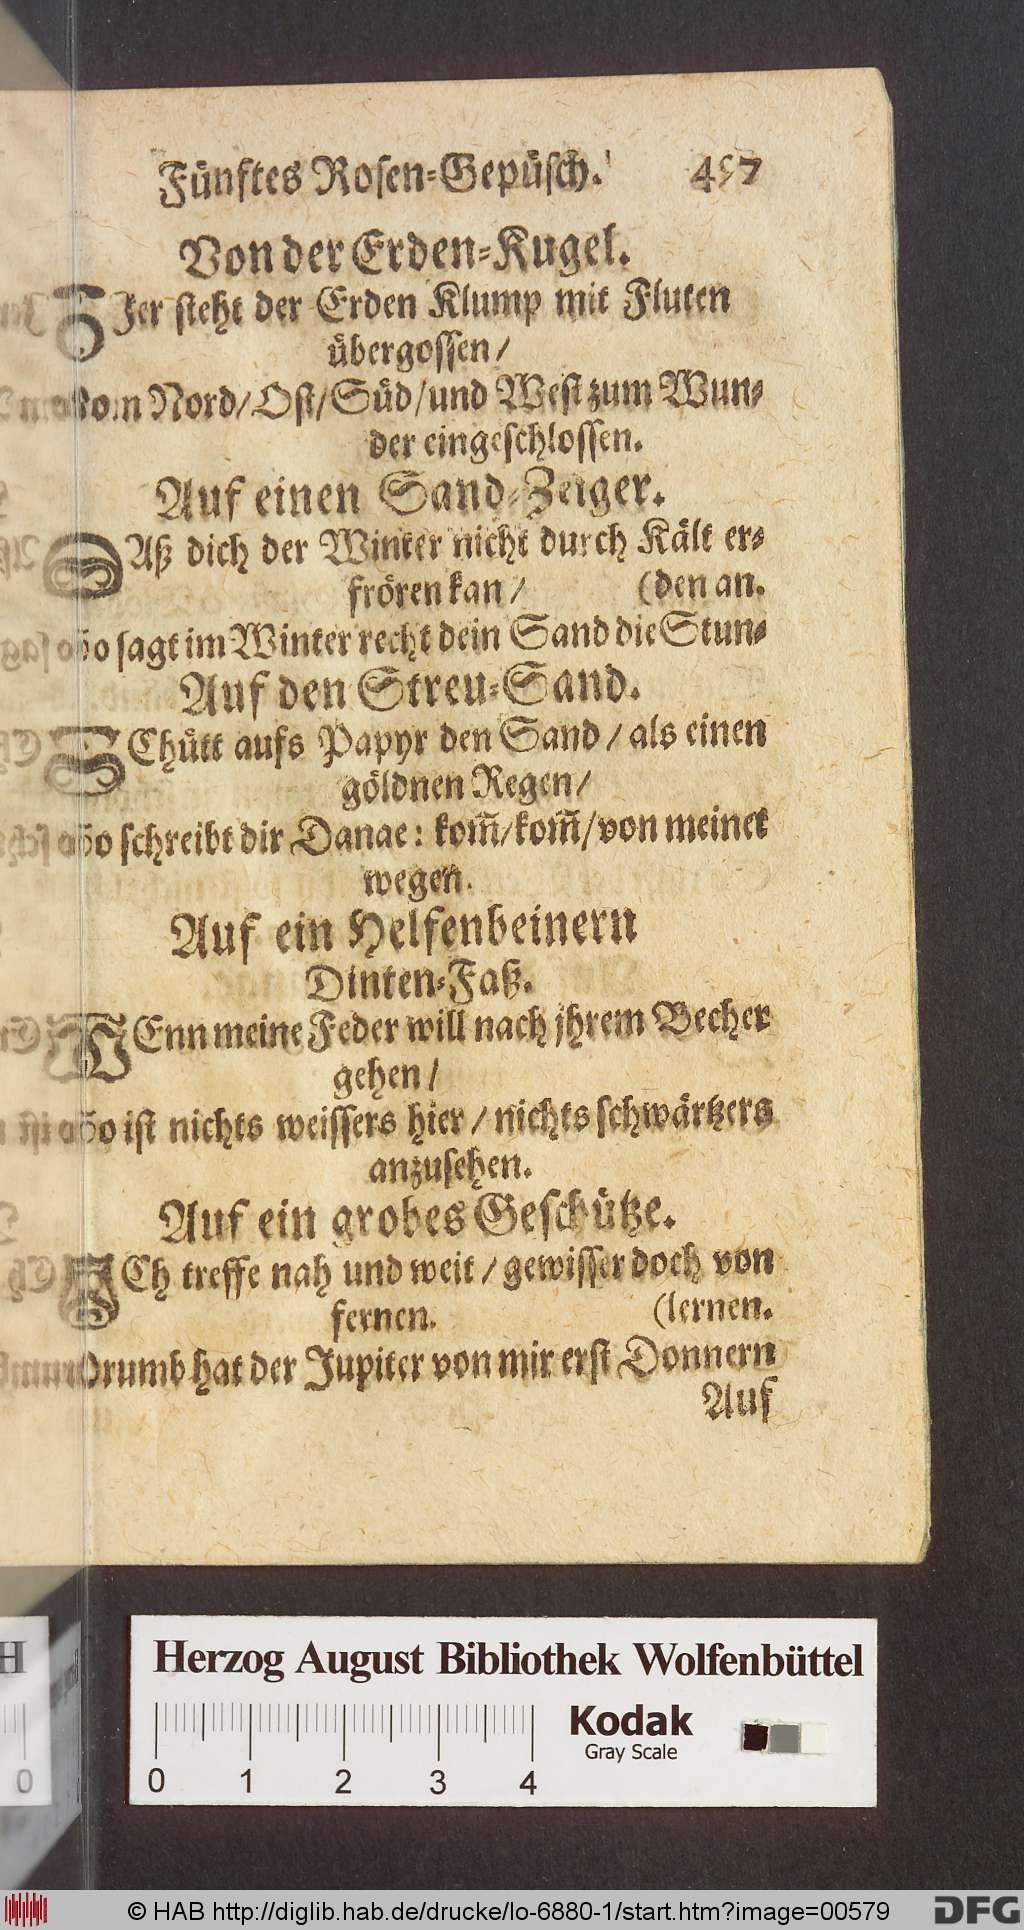 Fünftes Rosen-Gepüsch. 457
Von der Erden-Kugel.
HJer steht der Erden Klump mit Fluten
übergossen/
Vom Nord/Ost/Süd/und West zum Wun-
der eingeschlossen.
Auf einen Sand-Zeiger.
DAß dich der Winter nicht durch Kält er-
frören kan / (den an.
So sagt im Winter recht dein Sand die Stun-
Auf den Streu-Sand.
SChütt aufs Papyr den Sand / als einen
göldnen Regen/
So schreibt dir Danae: kom̃/kom̃/von meinet
wegen.
Auf ein Helfenbeinern
Dinten-Faß.
WEnn meine Feder will nach jhrem Becher
gehen /
So ist nichts weissers hier / nichts schwärtzers
anzusehen.
Auf ein grobes Geschütze.
JCh treffe nah und weit / gewisser doch von
fernen. (lernen.
Drumb hat der Jupiter von mir erst Donnern
Auf
Herzog August Bibliothek Wolfenbüttel
Kodak
Gray Scale
0 1 2 3 4
© HAB http://diglib.hab.de/drucke/lo-6880-1/start.htm?image=00579
DFG